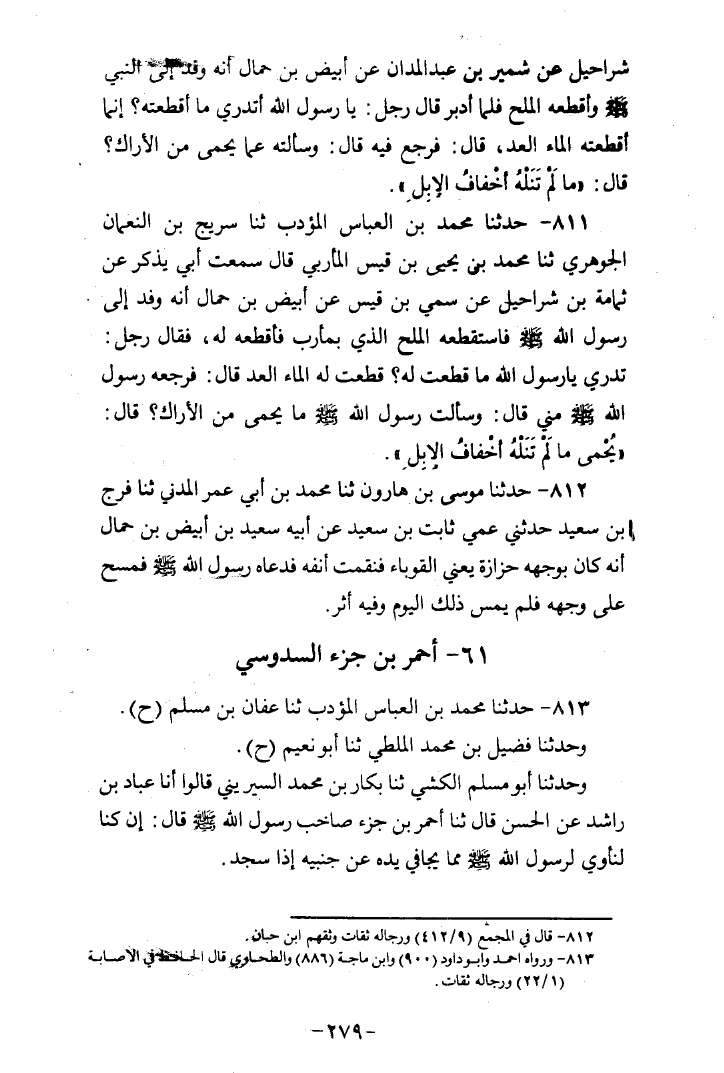 شراحيل عن شمير بن عبدالمدان عن أبيض بن حمال أنه وفد إلى النبي
ﷺ وأقطعه الملح فلما أدبر قال رجل: يا رسول الله أتدري ما أقطعته؟ إنما
أقطعته الماء العد، قال: فرجع فيه قال: وسألته عما يحمى من الأراك؟
قال: «ما لَمْ تَنَلْهُ أخْفافُ الإبل».
٨١١- حدثنا محمد بن العباس المؤدب ثنا سريج بن النعمان
الجوهري ثنا محمد بن يحيى بن قيس المأربي قال سمعت أبي يذكر عن
ثمامة بن شراحيل عن سمي بن قيس عن أبيض بن حمال أنه وفد إلى
رسول الله ﷺ فاستقطعه الملح الذي بمأرب فأقطعه له، فقال رجل:
تدري يارسول الله ما قطعت له؟ قطعت له الماء العد قال: فرجعه رسول
الله ﷺ مني قال: وسألت رسول الله ﷺ ما يحمى من الأراك؟ قال:
«يُحْمى ما لَمْ تَنَلْهُ أخْفافُ الإبل».
٨١٢- حدثنا موسى بن هارون ثنا محمد بن أبي عمر المدني ثنا فرج
ابن سعيد حدثني عمي ثابت بن سعيد عن أبيه سعيد بن أبيض بن حمال
أنه كان بوجهه حزازة يعني القوباء فنقمت أنفه فدعاه رسول الله ﷺ فمسح
على وجهه فلم يمس ذلك اليوم وفيه أثر.
٦١- أحمر بن جزء السدوسي
٨١٣- حدثنا محمد بن العباس المؤدب ثنا عفان بن مسلم (ح).
وحدثنا فضيل بن محمد الملطي ثنا أبو نعيم (ح).
وحدثنا أبو مسلم الكشي ثنا بكار بن محمد السيريني قالوا أنا عباد بن
راشد عن الحسن قال ثنا أحمر بن جزء صاحب رسول الله ﷺ قال: إن كنا
لنأوي لرسول الله ﷺ مما يجافي يده عن جنبيه إذا سجد.
٨١٢- قال في المجمع (٤١٢/٩) ورجاله ثقات وثقهم ابن حبان.
٨١٣- ورواه احمد وابو داود (٩٠٠) وابن ماجة (٨٨٦) والطحاوي قال الحافظ في الاصابة
(٢٢/١) ورجاله ثقات.
-٢٧٩-